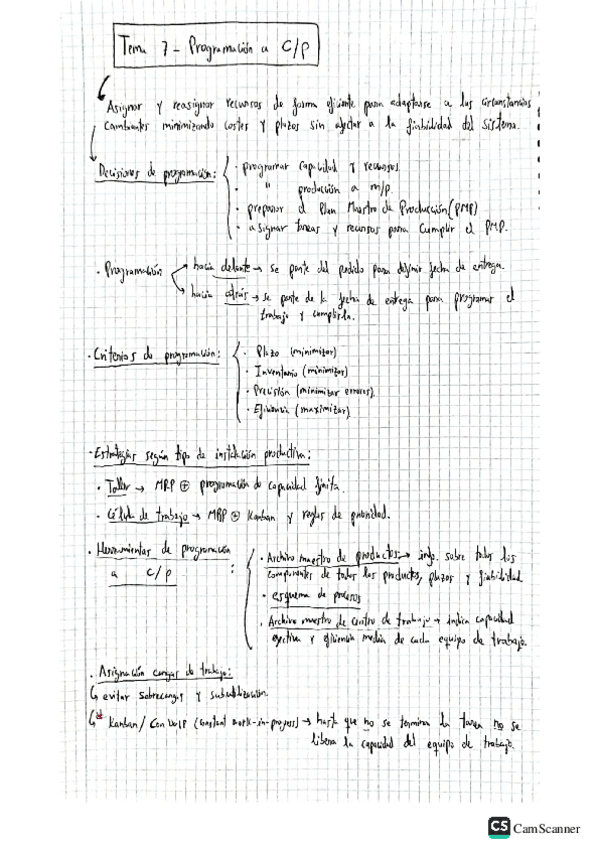 Tema 7 - Programación a C/P
Asignar y reasignar recursos de forma eficiente para adaptarse a las circunstancias
cambiantes minimizando costes y plazos sin afectar a la fiabilidad del sistema.
Decisiones de programación: · programar capacidad y recursos.
· " producción a m/p.
· preparar el Plan Maestro de Producción (PMP)
· asignar tareas y recursos para cumplir el PMP.
· Programación hacia delante → se parte del pedido para definir fecha de entrega.
hacia atrás → se parte de la fecha de entrega para programar el
trabajo y cumplirla.
· Criterios de programación: · Plazo (minimizar)
· Inventario (minimizar)
· Precisión (minimizar errores).
· Eficiencia (maximizar).
· Estrategias según tipo de instalación productiva:
· Taller → MRP ⊕ programación de capacidad finita.
· Célula de trabajo → MRP ⊕ Kanban y reglas de prioridad.
· Herramientas de programación
a C/P :
· Archivo maestro de productos → info. sobre todos los
componentes de todos los productos, plazos y fiabilidad
· esquema de procesos
· Archivo maestro de centro de trabajo → indica capacidad
efectiva y eficiencia media de cada equipo de trabajo.
· Asignación cargas de trabajo:
↳ evitar sobrecargas y subutilización.
↳ * Kanban / ConWIP (constant work-in-progress) → hasta que no se termina la tarea no se
libera la capacidad del equipo de trabajo.
CS CamScanner